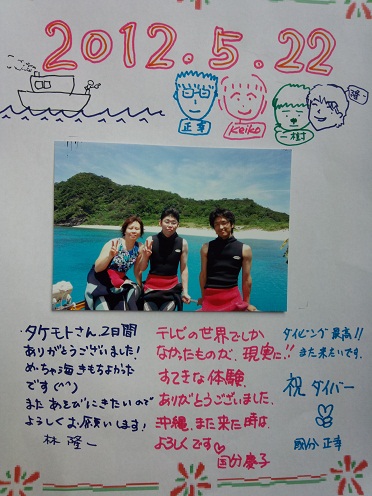 2012.5.22
正幸
Keiko
一樹
隆一
タケモトさん、2日間
ありがとうございました!
めちゃ海きもちよかった
です(^^)
またあそびにきたいので
よろしくお願いします!
林 隆一
テレビの世界でしか
なかったものが、現実に!!
すてきな体験、
ありがとうございました。
沖縄、また来た時は、
よろしくです♡
国分 慶子
ダイビング最高!!
また来たいです。
祝 ダイバー
国分 正幸